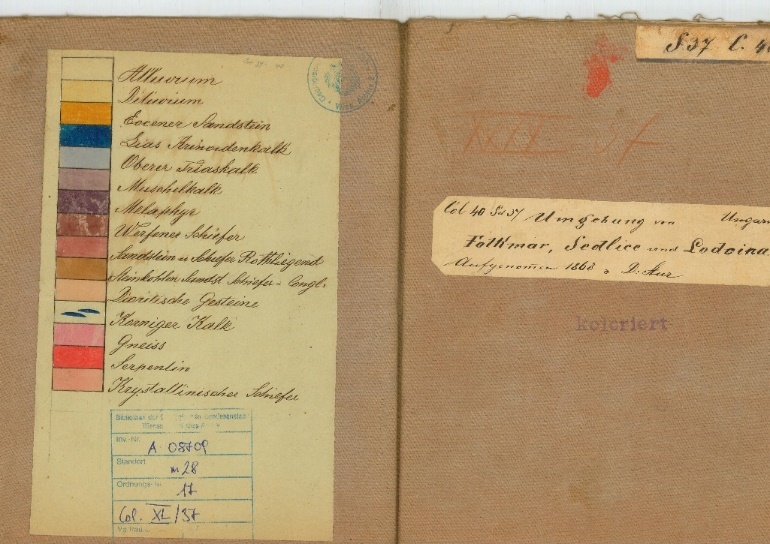 Alluvium
Diluvium
Eocener Sandstein
Lias Krinoidenkalk
Oberer Triaskalk
Muschelkalk
Melaphyr
Werfener Schiefer
Sandstein u Schiefer Rothliegend
Steinkohlen Sandst. Schiefer - Congl.
Dioritische Gesteine
Koerniger Kalk
Gneiss
Serpentin
Krystallinischer Schiefer
Inv.-Nr.
A 08709
Standort
m 28
Ordnungs-Nr
17
Col. XL/37
S 37 C. 4
XXXX
Col 40 Sect 37 Umgebung von Ungarn
Folkmar, Sedlice und Lodoina
Aufgenommen 1868 v D. Stur
koloriert